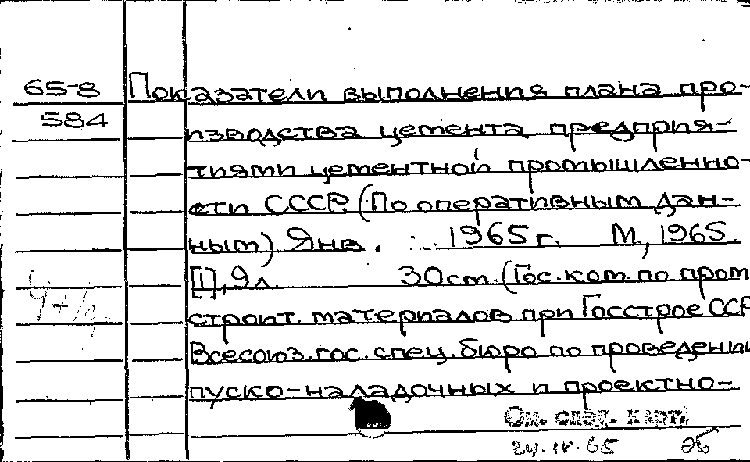 65-8 Показатели выполнения плана про-
584 изводства цемента предприя-
тиями цементной промышленно-
сти СССР. (По оперативным дан-
ным) Янв. 1965 г. М, 1965
[1], 9 л. 30 см. (Гос. ком. по пром
строит. материалов при Госстрое ССР
Всесоюз. гос. спец. бюро по проведени
пуско-наладочных и проектно-
24.IV.65